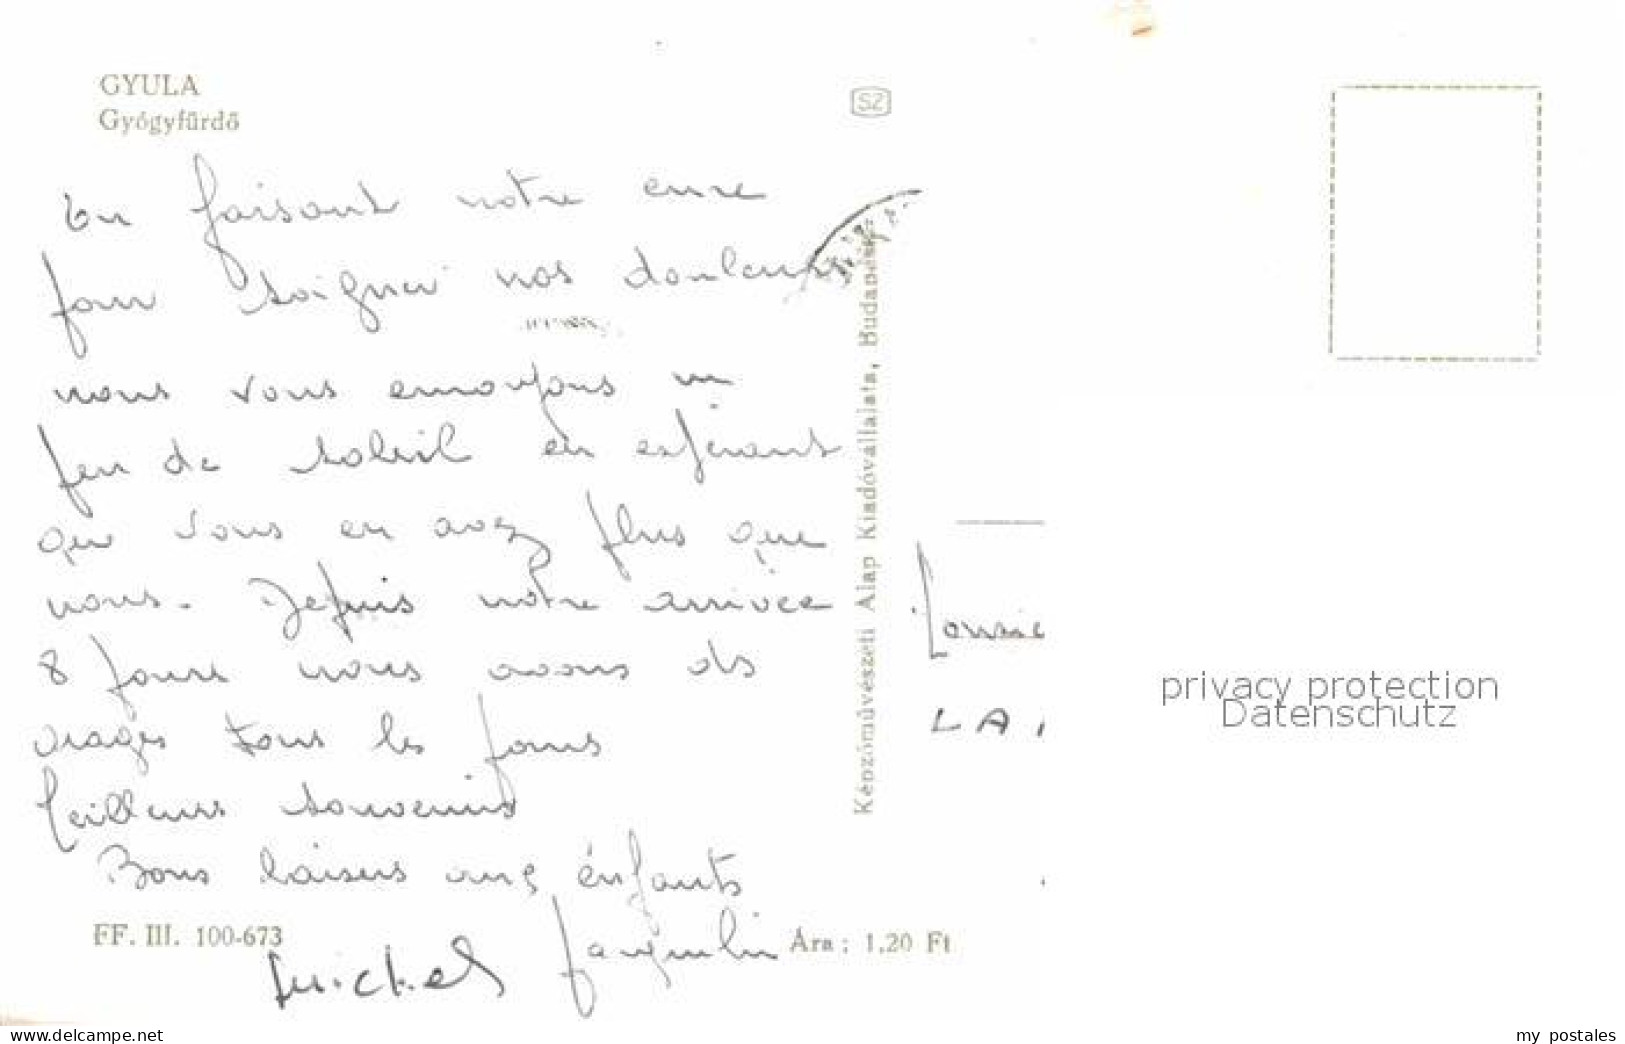 GYULA
Gyógyfürdő
SZ
En faisant notre cure
pour soigner nos douleurs
nous vous envoyons un
peu de soleil en espérant
que vous en avez plus que
nous. Depuis notre arrivée
8 jours nous avons ds
orages tous les jours
Meilleurs souvenirs
Bons baisers aux énfants
Michel Jacquelin
FF. III. 100-673
Ára: 1,20 Ft
Képzőművészeti Alap Kiadóvállalata, Budapest
LA
privacy protection
Datenschutz
www.delcampe.net
my_postales